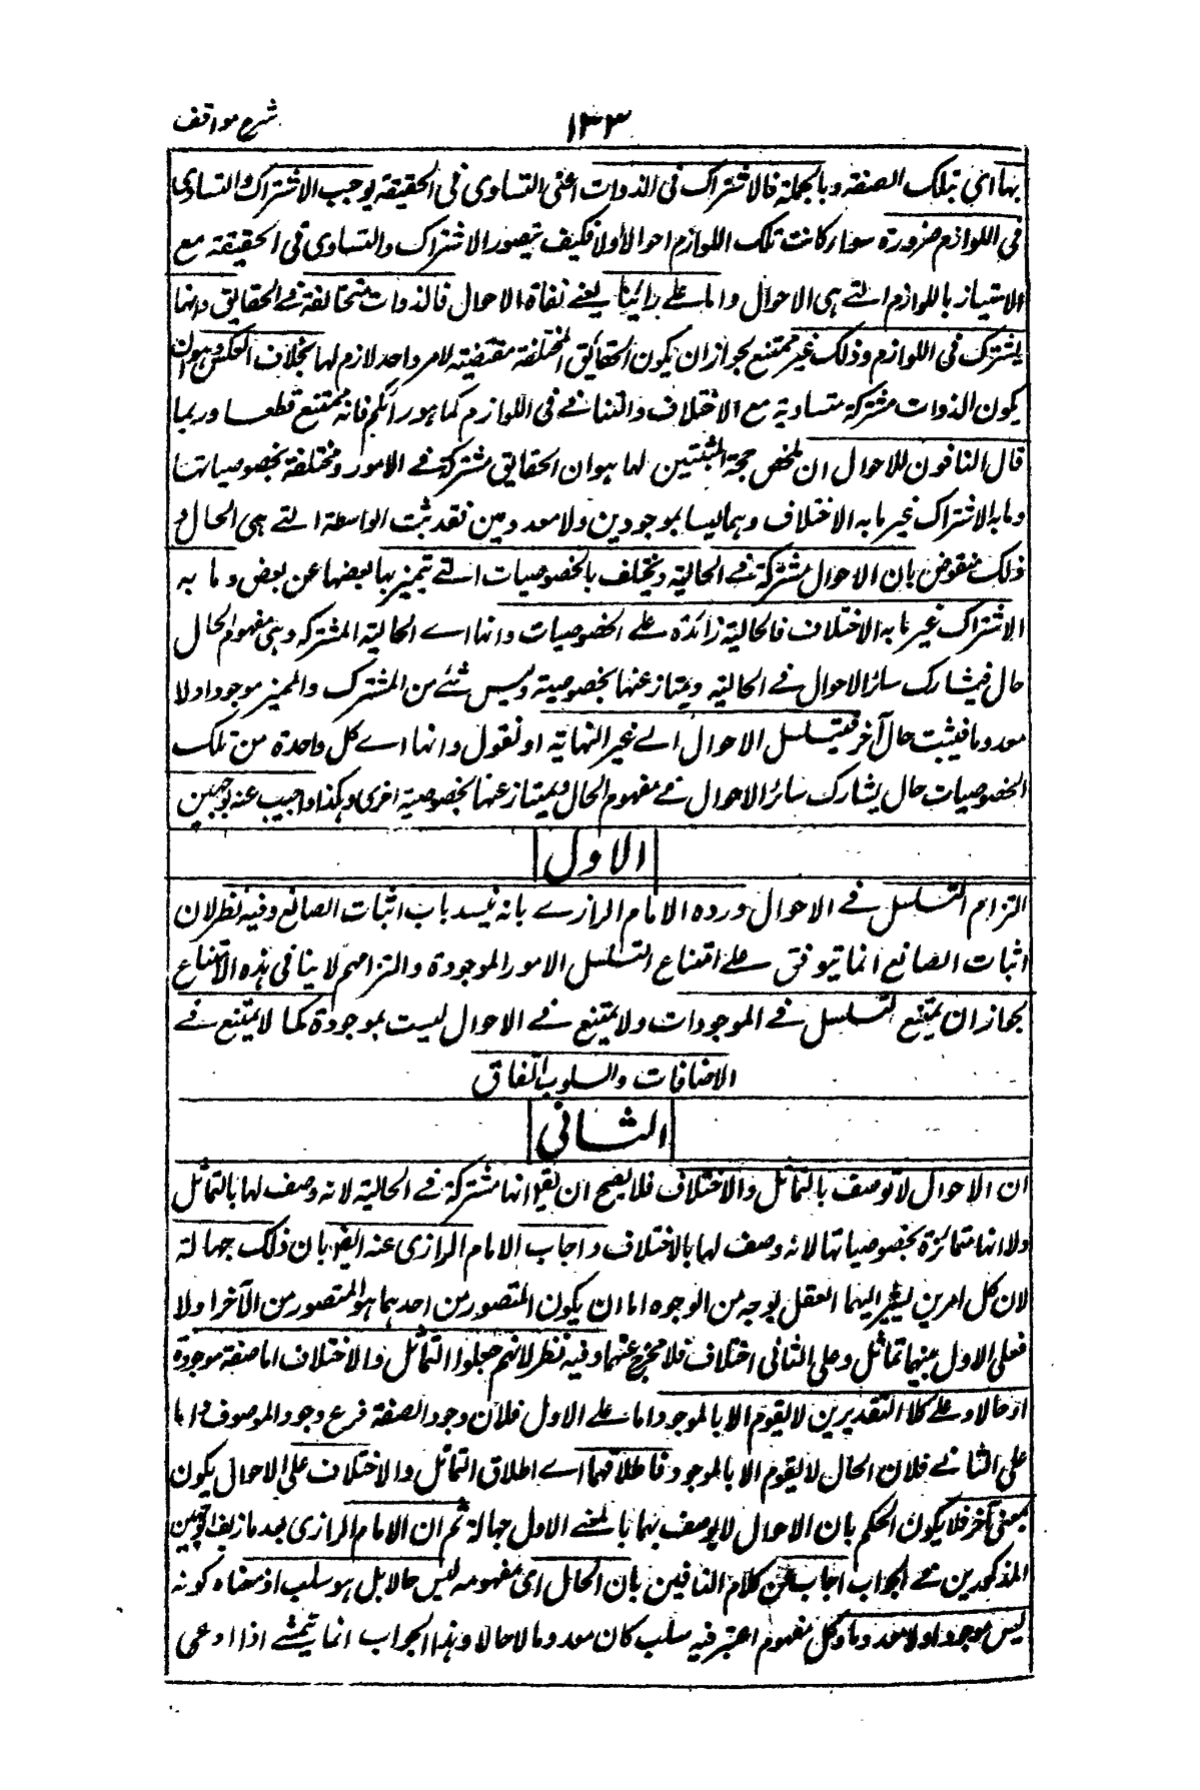 شرح مواقف
١٣٣
بها اى بتلك الصفة وبالجملة فالاشتراك فى الذوات اعنى التساوى فى الحقيقة يوجب الاشتراك والتساوى
فى اللوازم ضرورة سواء كانت تلك اللوازم احوالا أولا فكيف يتصور الاشتراك والتساوى فى الحقيقة مع
الامتياز باللوازم التے هى الاحوال واما على رائينا يعنے نفاة الاحوال فالذوات متخالفة فے الحقايق وانها
يشترك فى اللوازم وذلك غير ممتنع لجواز ان يكون الحقائق المختلفة مقتضية لامر واحد لازم لها بخلاف العكس وهو ان
يكون الذوات مشتركة متساوية مع الاختلاف والتنافے فى اللوازم كما هو رأيكم فانه ممتنع قطعا وربما
قال النافون للاحوال ان ملخص حجة المثبتين لها هو ان الحقايق مشتركة فے الامور ومختلفة بخصوصياتها
وما به الاشتراك غير ما به الاختلاف وهما ليسا بموجودين ولا معدومين فقد ثبت الواسطة التے هى الحال و
ذلك منقوض بان الاحوال مشتركة فے الحالية وتختلف بالخصوصيات التے يتميز بها بعضها عن بعض وما به
الاشتراك غير ما به الاختلاف فالحالية زائدة على الخصوصيات وانها اے الحالية المشتركة وهى مفهوم الحال
حال فيشارك سائر الاحوال فے الحالية ويمتاز عنها بخصوصية وليس شئے من المشترك والمميز موجودا ولا
معدوما فيثبت حال آخر فيتسلسل الاحوال الے غير النهاية او نقول وانها اے كل واحدة من تلك
الخصوصيات حال يشارك سائر الاحوال فے مفهوم الحال ويمتاز عنها بخصوصية اخرى وهكذا واجيب عنه بوجهين
الاول
التزام التسلسل فے الاحوال ورده الامام الرازے بانه يسد باب اثبات الصانع وفيه نظر لان
اثبات الصانع انما يتوقف على امتناع التسلسل الامور الموجودة والتزامهم لا ينافى هذه الامتناع
لجواز ان يمتنع التسلسل فے الموجودات ولا يمتنع فے الاحوال ليست بموجودة كما لا يمتنع فے
الاضافات والسلوب اتفاق
الثانى
ان الاحوال لا توصف بالتماثل والاختلاف فلا يصح ان يقو انها مشتركة فے الحالية لانه وصف لها بالتماثل
ولا انها متمائزة بخصوصياتها لانه وصف لها بالاختلاف واجاب الامام الرازى عنه بان ذلك جهالة
لان كل امرين يشير اليهما العقل بوجه من الوجوه اما ان يكون المتصور من احدهما هو المتصور من الآخر اولا
فعلى الاول بينهما تماثل وعلى الثانى اختلاف فلا مخرج عنهما وفيه نظر لانهم جعلوا التماثل والاختلاف اما صفة موجودة
او حالا وعلى كلا التقديرين لا يقوم الا بالموجود اما على الاول فلان وجود الصفة فرع وجود الموصوف واما
على الثانے فلان الحال لا يقوم الا بالموجود فاطلاقهما اے اطلاق التماثل والاختلاف على الاحوال يكون
بمعنى آخر فلا يكون الحكم بان الاحوال لا يوصف بهما بالمعنے الاول جهالة ثم ان الامام الرازى بعد ما زيف الوجهين
المذكورين فے الجواب اجاب عن كلام النافين بان الحال اى مفهومه ليس حالا بل هو سلب اذ معناه كونه
ليس موجودا ولا معدوما وكل مفهوم اعتبر فيه سلب كان معدوما لا حالا وهذا الجواب انما يتمشے اذا ادعى